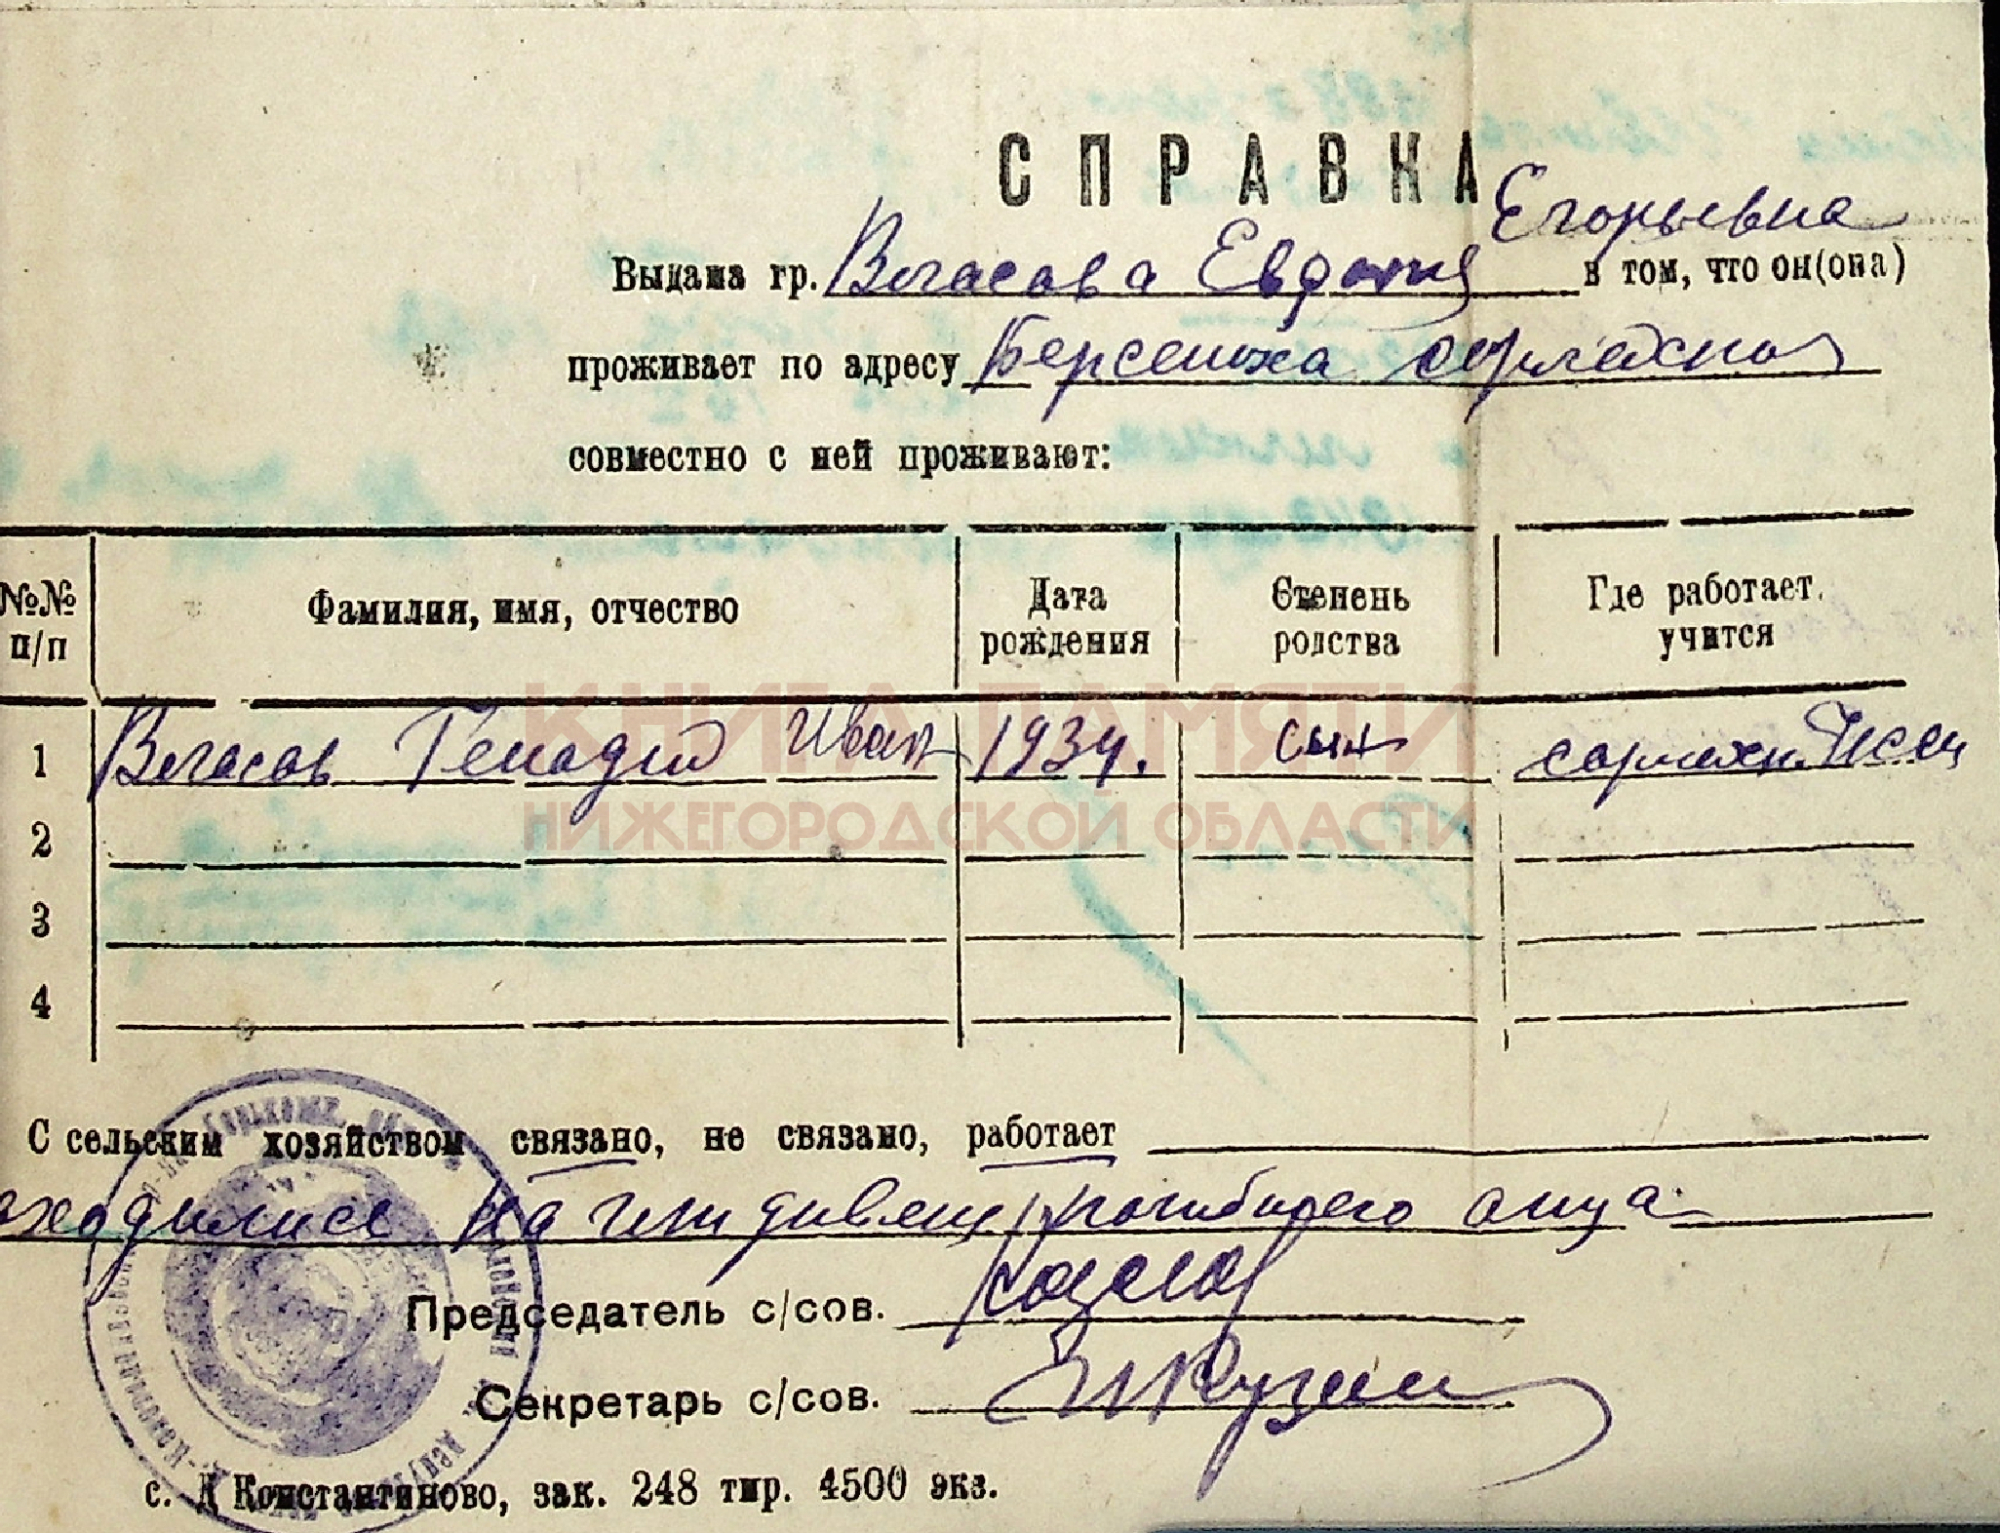 СПРАВКА
Егорьевна
Выдана гр. Власова Евдокия в том, что он(она)
проживает по адресу
совместно с ней проживают:
№№ п/п Фамилия, имя, отчество Дата рождения Степень родства Где работает, учится
КНИГА ПАМЯТИ
1 Власов Генадий Иван 1934. сын
НИЖЕГОРОДСКОЙ ОБЛАСТИ
2
3
4
С сельским хозяйством связано, не связано, работает
находились на иждивении погибшего отца
Председатель с/сов. Козлов
Секретарь с/сов. Кузин
с. Д Константиново, зак. 248 тир. 4500 экз.